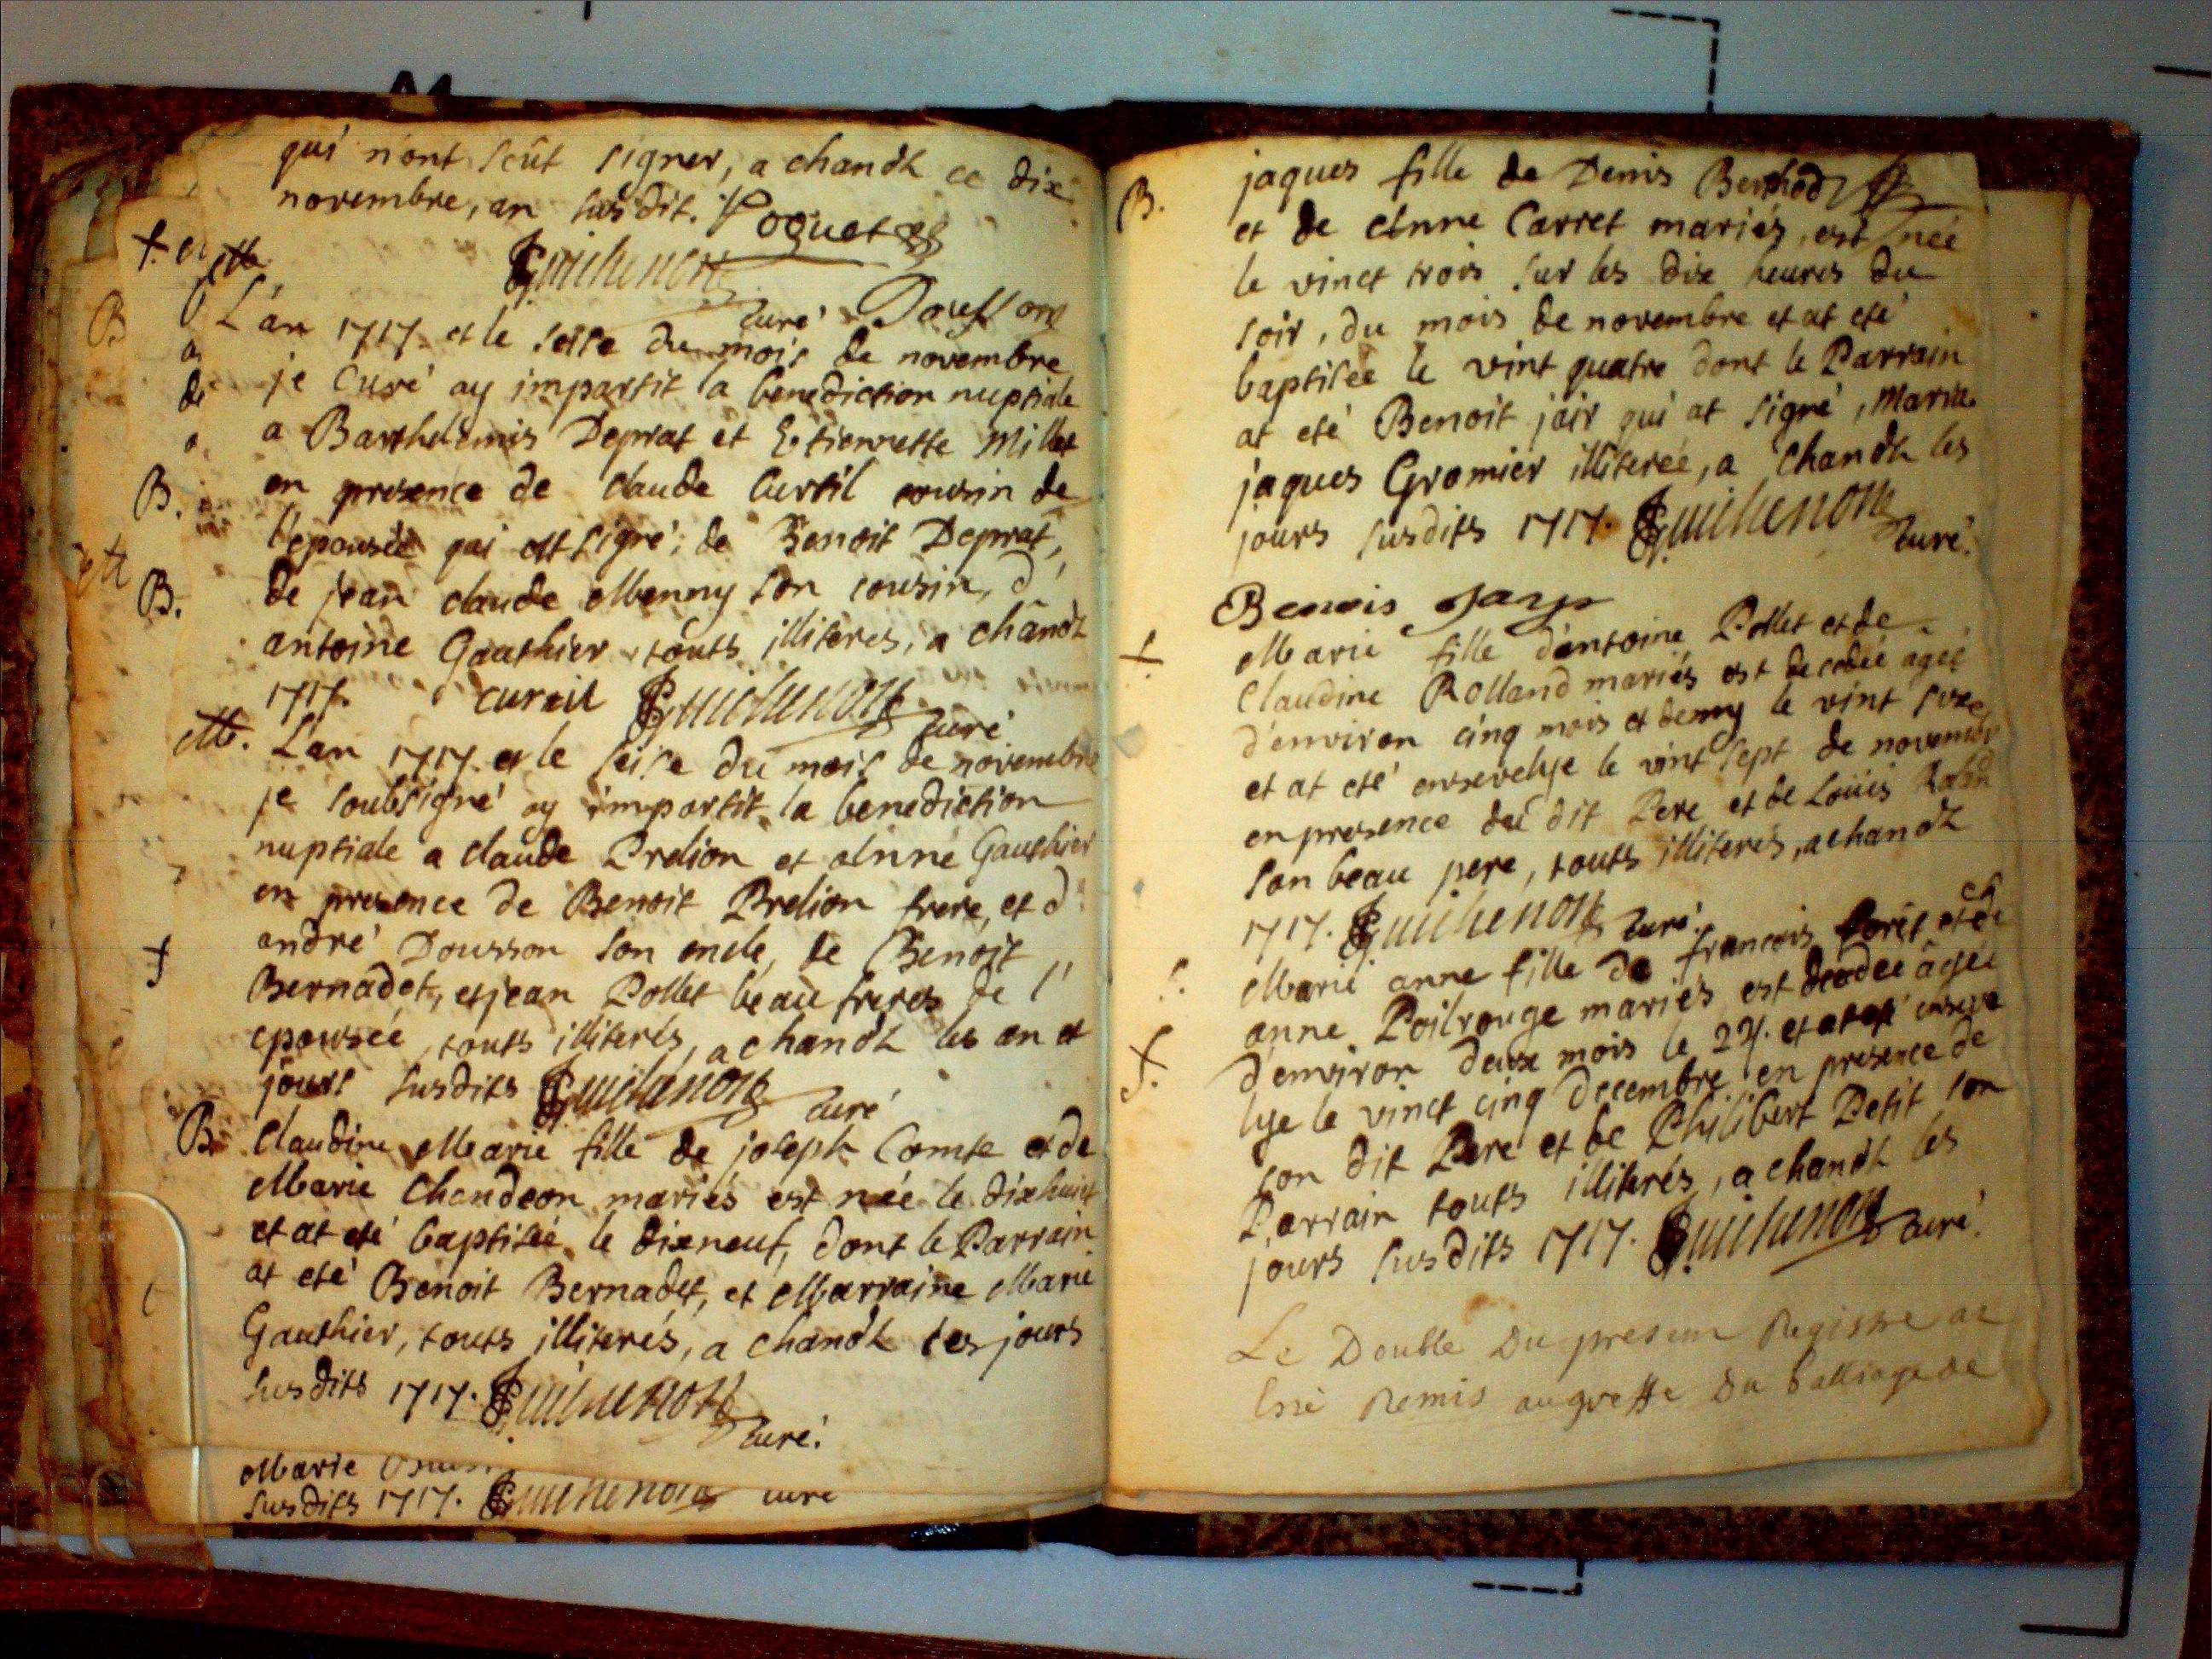 qui n'ont scût signer, a chandt ce dix
novembre, an susdit. Poguet
Guichenon
curé
M. L'an 1717. et le seise du mois de novembre
je Curé ay impartit la benediction nuptiale
a Barthelemis Deprat et Etiennette Millet
en presence de claude Curtil cousin de
l'epousée qui att signé, de Benoit Deprat,
de jean claude Monny son cousin, d'
antoine Gauthier touts illiteres, a chandt
1717. curtil Guichenon curé
M. L'an 1717. et le seise du mois de novembre
je soubsigné ay impartit la benediction
nuptiale a claude Prelion et Anne Gauthier
en presence de Benoit Prelion frere, et d'
andré Dousson son oncle, de Benoit
Bernadet, et jean Pollet beau freres de l'
epousée, touts illiterés, a chandt les an et
jours susdits Guichenon curé
B. Claudine Marie fille de joseph Comte et de
Marie Chandeon mariés est née le dixhuict
et at eté baptisée le dixneuf, dont le Parrain
at eté Benoit Bernadet, et Marraine Marie
Gauthier, touts illiterés, a chandt les jours
susdits 1717. Guichenon
curé.
Marie
susdits 1717. Guichenon curé
B. jaques fille de Denis Berthod
et de Anne Carret mariés, est née
le vinct trois sur les dix heures du
soir, du mois de novembre et at eté
baptisée le vint quatre dont le Parrain
at eté Benoit jair qui at signé, Marie
jaques Gromier illiterée, a Chandt les
jours susdits 1717. Guichenon
curé.
Benois
† Marie fille d'antoine Pollet et de
Claudine Rolland mariés est decedée ageé
d'environ cinq mois et demy le vint sixe
et at eté ensevelye le vint sept de novembr
en presence du dit Pere et de Loüis
son beau pere, touts illiterés, a chandt
1717. Guichenon curé.
Marie anne fille de francois forêt et de
anne Poilrouge mariés est decedee âgée
d'environ deux mois le 24. et at eté enseve
lye le vinct cinq decembre en présence de
son dit Pere et de Philibert Petit son
Parrain touts illiterés, a chandt les
jours susdits 1717. Guichenon curé.
Le Double Du present Registre at
Esté Remis au greffe Du balliage de